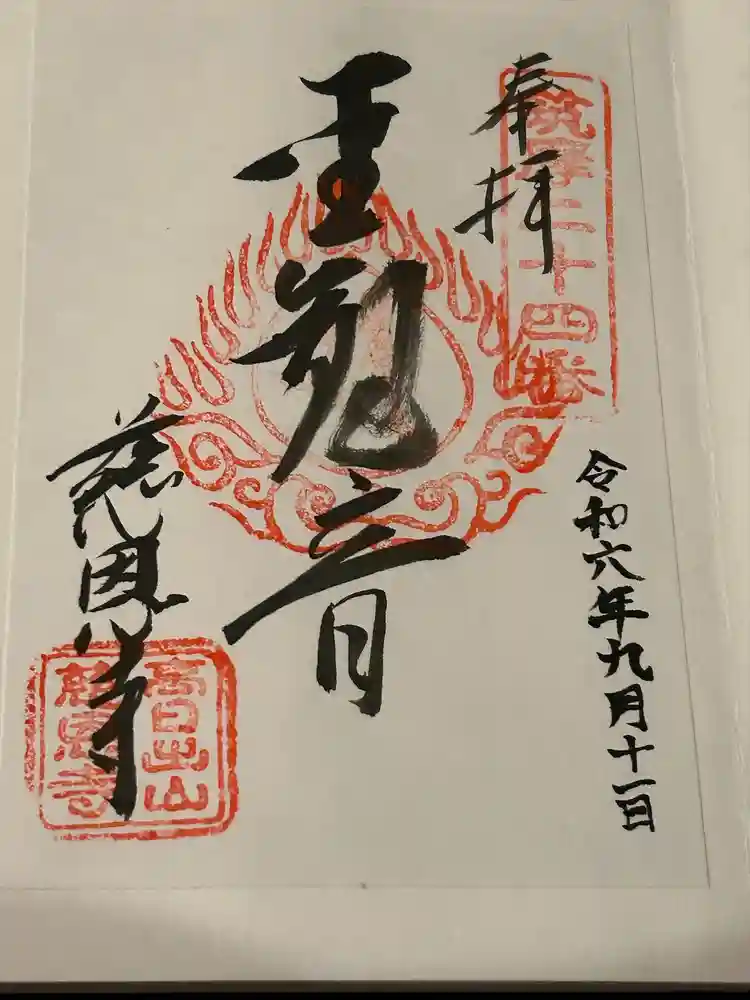 奉拝
二十四番
聖観音
令和六年九月十一日
慈恩寺
高日出山
慈恩寺